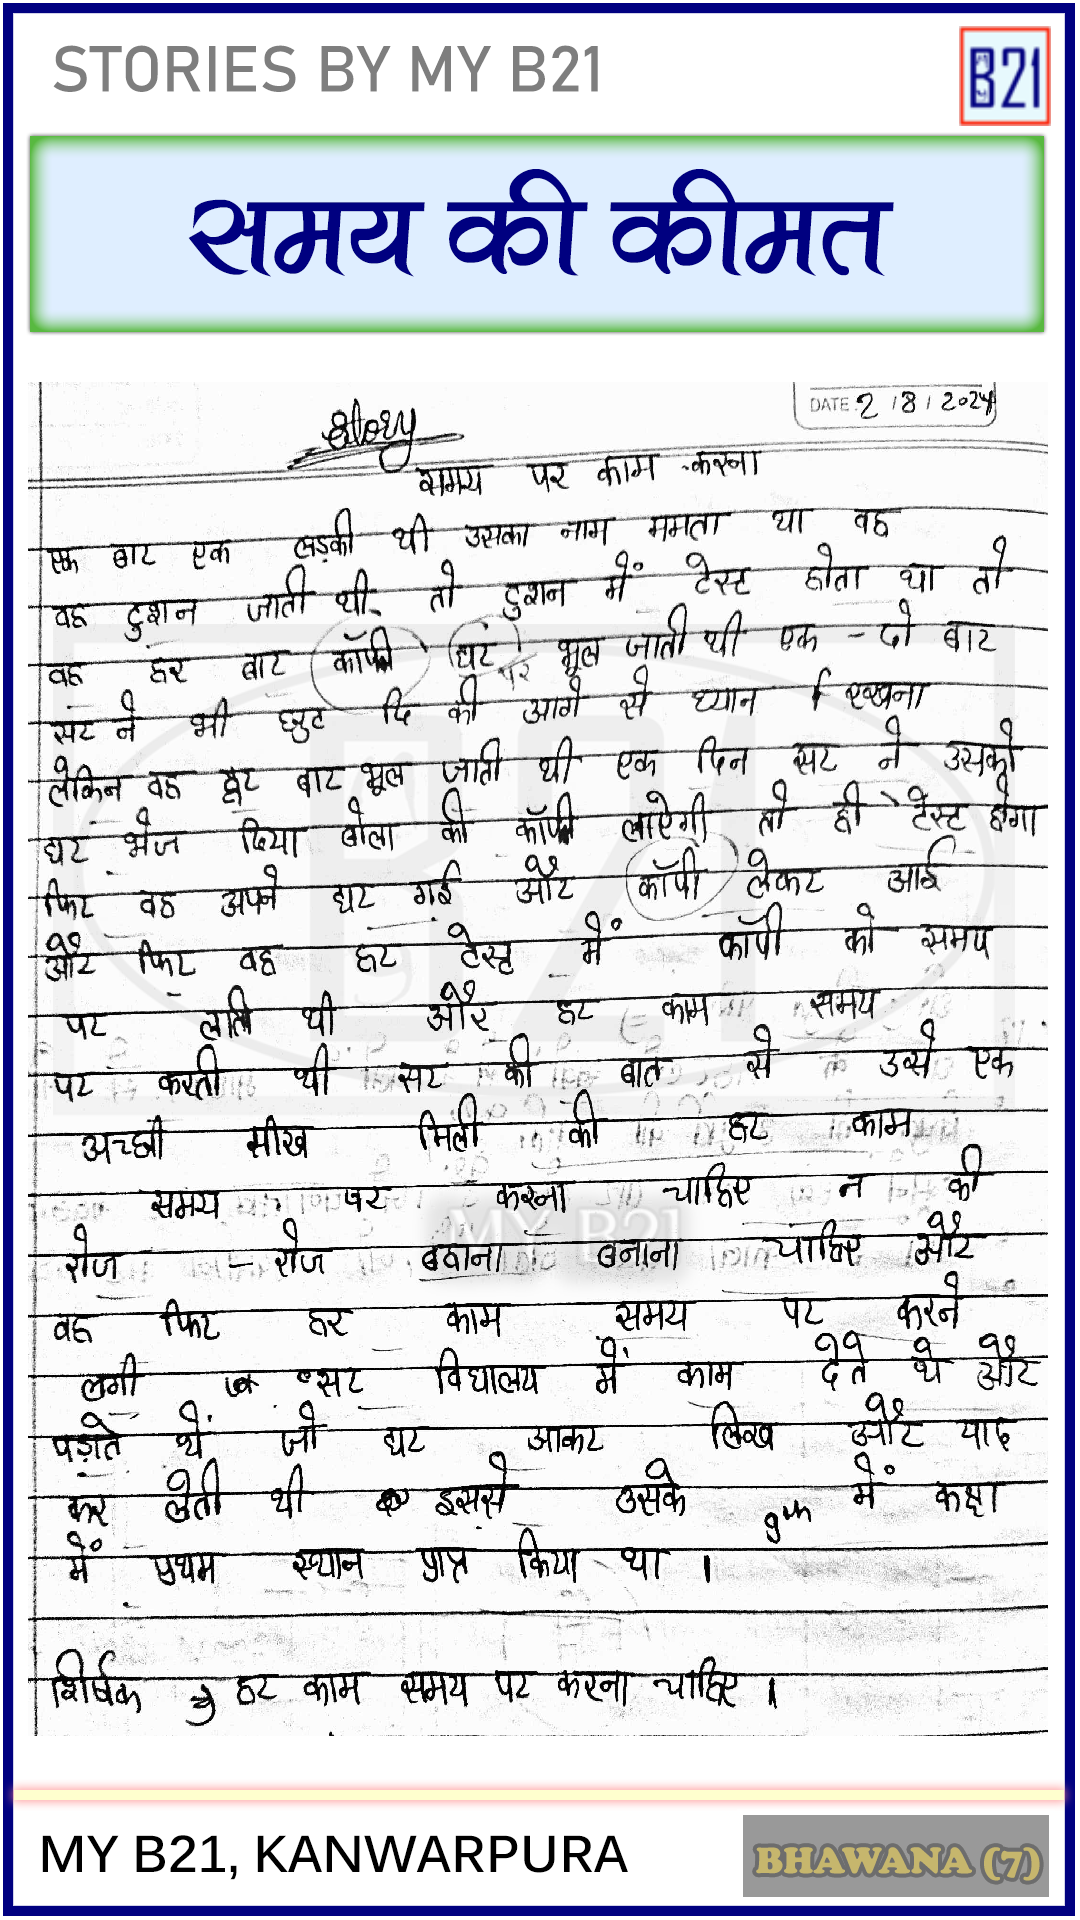 STORIES BY MY B21
B21
समय की कीमत
DATE 2/8/2024
Story
समय पर काम करना
एक बार एक लड़की थी उसका नाम ममता था वह
वह टुशन जाती थी तो टुशन में टेस्ट होता था तो
वह हर बार कॉपी घर पर भूल जाती थी एक - दो बार
सर ने भी छुट दि की आगे से ध्यान रखना
लेकिन वह हर बार भूल जाती थी एक दिन सर ने उसको
घर भेज दिया बोला की कॉपी लाऐगी तो ही टेस्ट होगा
फिर वह अपने घर गई और कॉपी लेकर आई
और फिर वह हर टेस्ट में कॉपी को समय
पर लाती थी और हर काम समय
पर करती थी सर की बात से उसे एक
अच्छी सीख मिली की हर काम
समय पर करना चाहिए न की
रोज - रोज बवाना बनाना चाहिए और
वह फिर हर काम समय पर करने
लगी सर विधालय में काम देते थे और
पड़ाते थें जो घर आकर लिख और याद
कर लेती थी इससे उसके 9th में कक्षा
में प्रथम स्थान प्राप्त किया था ।
शिर्षक → हर काम समय पर करना चाहिए ।
MY B21
MY B21, KANWARPURA
BHAWANA (7)